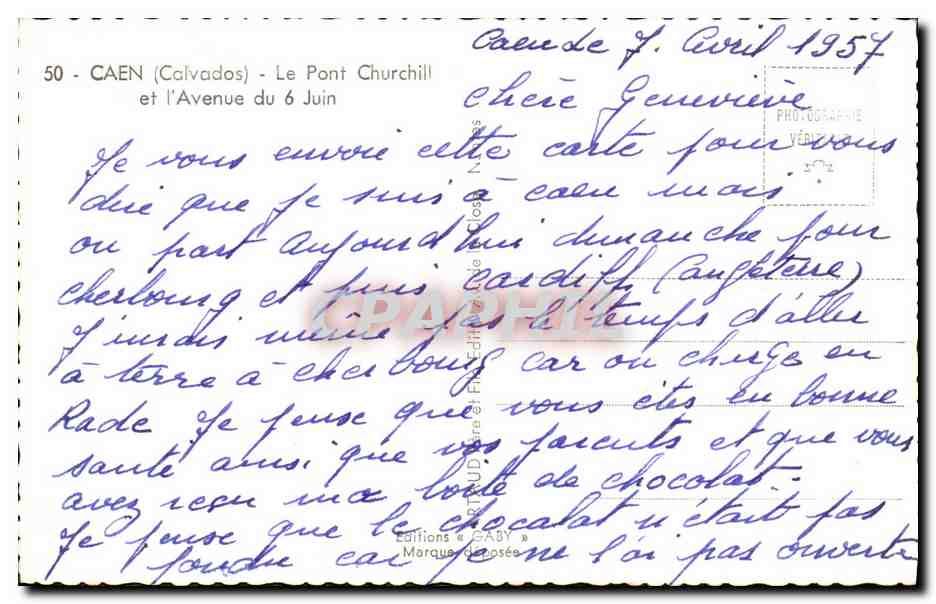 50 - CAEN (Calvados) - Le Pont Churchill
et l'Avenue du 6 Juin
Caen le 7. Avril 1957
PHOTOGRAPHIE
VÉRITABLE
chère Geneviève
Je vous envoie cette carte pour vous
dire que je suis à caen mais
on part aujourd'hui dimanche pour
cherbourg et puis Cardiff (angleterre)
J'aurais même pas le temps d'aller
à terre à cherbourg car on charge en
Rade Je pense que vous êtes en bonne
santé ainsi que vos parents et que vous
avez reçu ma boite de chocolat.
Je pense que le chocolat n'était pas
fondu car je ne l'ai pas ouverte
CPARAMA
Editions « GABY »
Marque déposée
ARTAUD Père et Fils, Editeurs